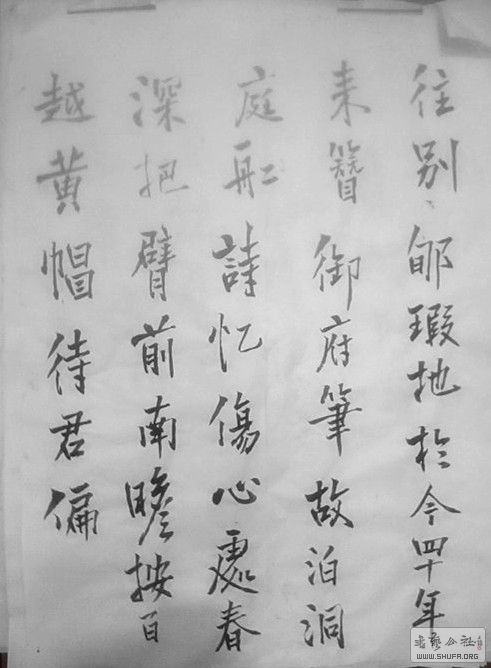 往别郇瑕地於今四十年
来簪御府筆故泊洞
庭船詩忆傷心處春
深把臂前南瞻按百
越黄帽待君偏
書艺公社
WWW.SHUFA.ORG